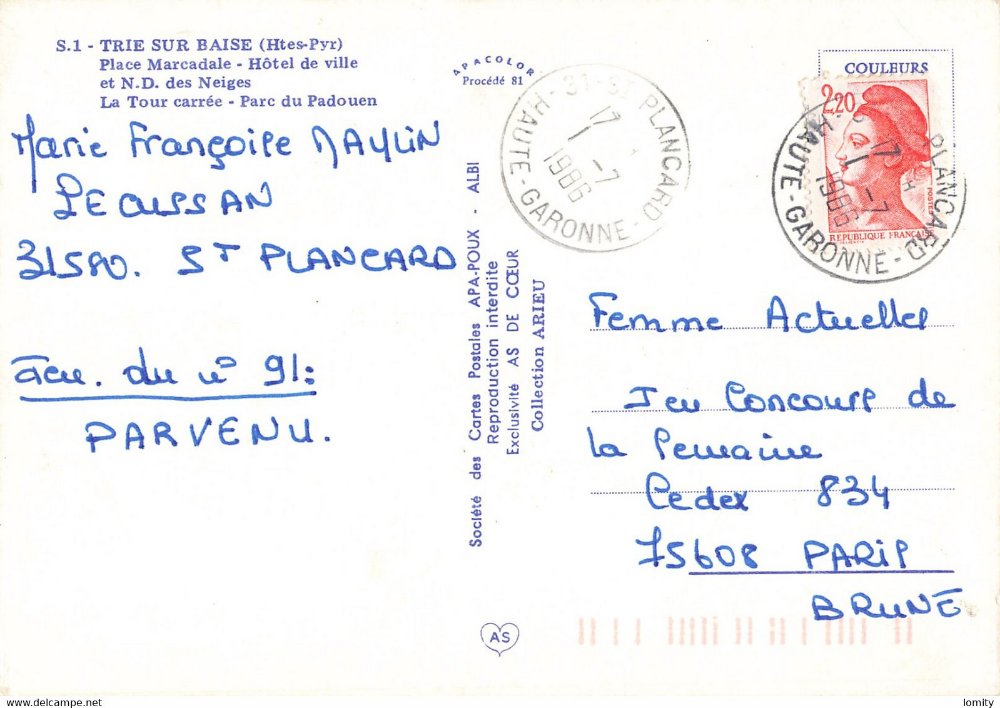 S.1 - TRIE SUR BAISE (Htes-Pyr)
Place Marcadale - Hôtel de ville
et N.D. des Neiges
La Tour carrée - Parc du Padouen
Marie Françoise MAYLIN
LECUSSAN
31580. ST PLANCARD
Jeu. du n° 91:
PARVENU.
APACOLOR
Procédé 81
Société des Cartes Postales APA-POUX - ALBI
Reproduction interdite
Exclusivité AS DE CŒUR
Collection ARIEU
AS
31 - ST PLANCARD
17 -
1 - 7
1986
HAUTE-GARONNE
COULEURS
2,20
POSTES
REPUBLIQUE FRANÇAISE
PLANCARD
17 H
1 - 7
1986
HAUTE-GARONNE
Femme Actuelles
Jeu Concours de
la Semaine
Cedex 834
75608 PARIS
BRUNE
lomity